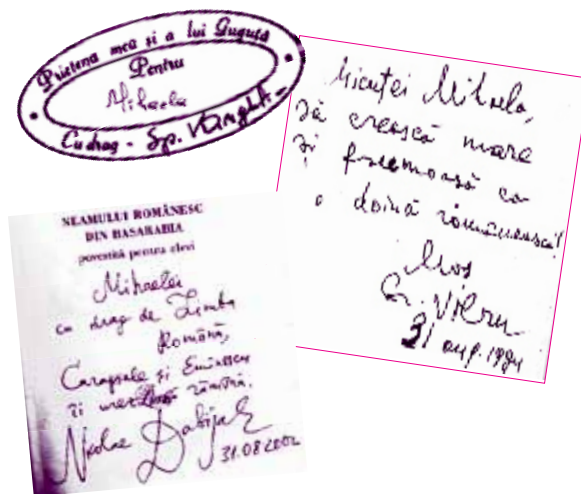 Prietena mea și a lui Guguță
Pentru
Mihaela
Cu drag - Sp. Vangheli
Micuței Mihaela,
să crească mare
și frumoasă ca
o doină românească!
Moș
Gr. Vieru
31 aug. 1994
NEAMULUI ROMÂNESC
DIN BASARABIA
povestită pentru elevi
Mihaelei
cu drag de Limba
Română,
Caragiale și Eminescu
îi urează
Nicolae Dabija
31.08.2002